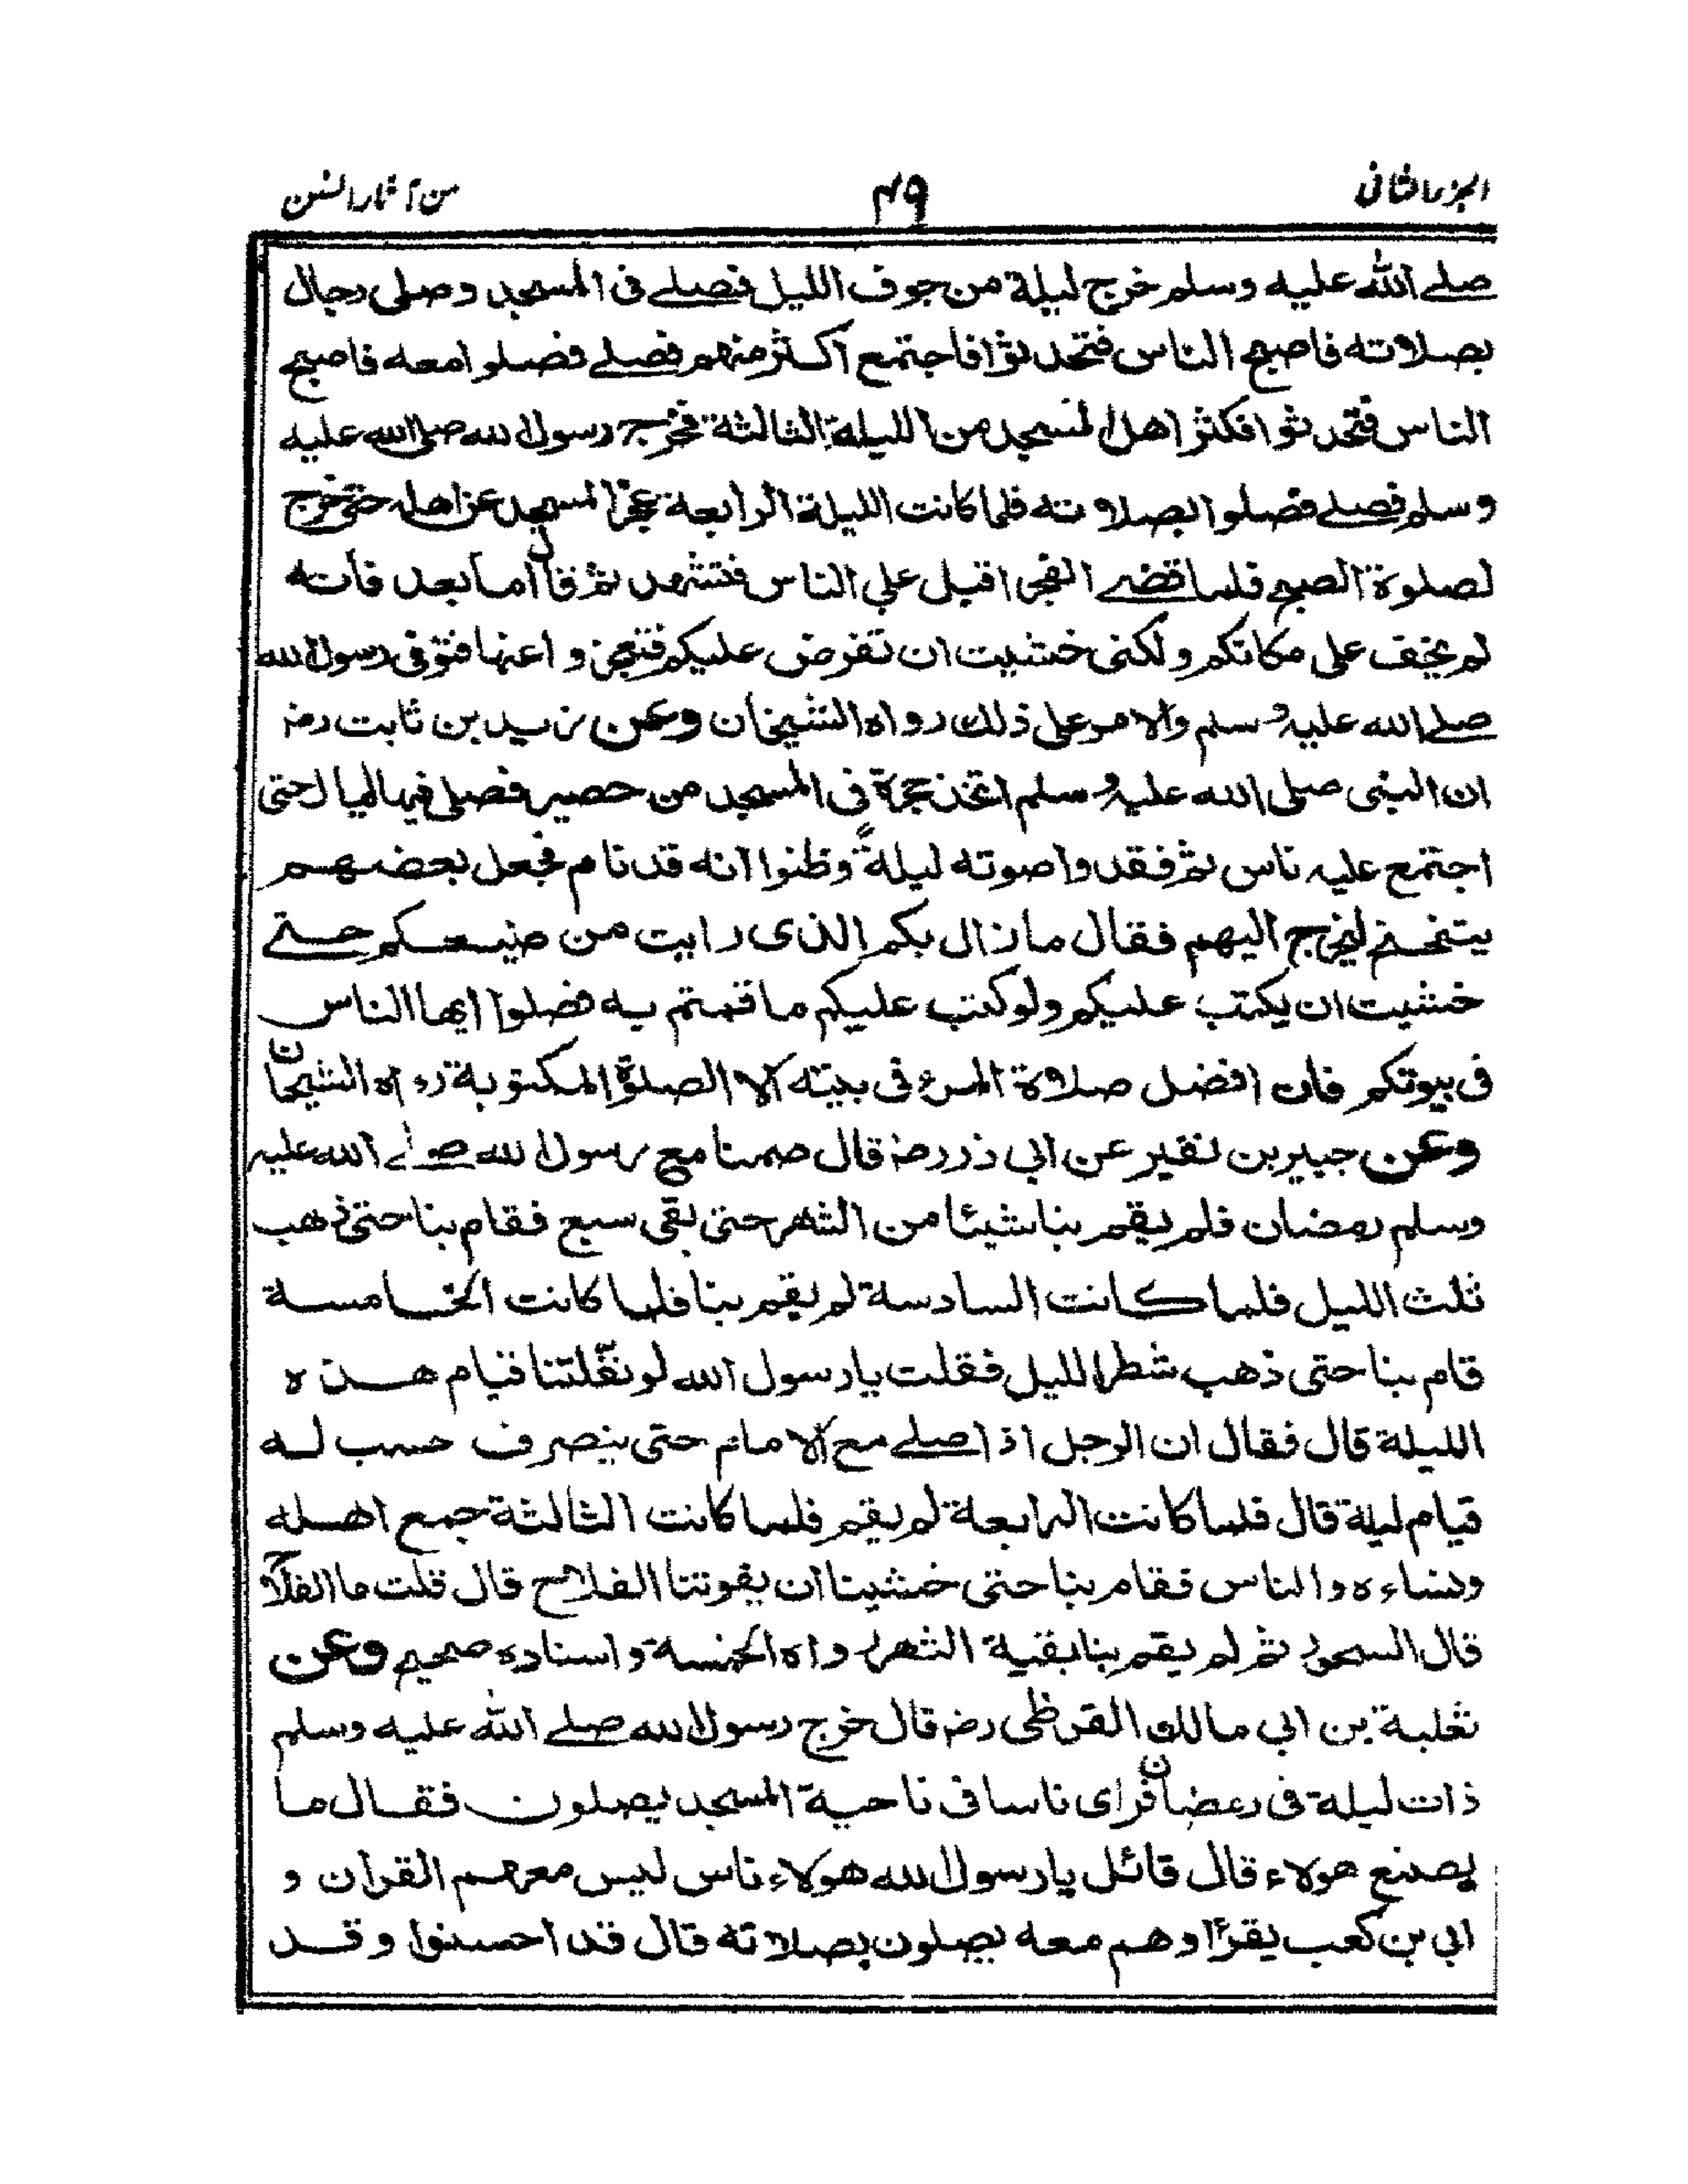 الجزء الثانی ۴۹ من آثار السنن
صلے الله عليه وسلم خرج ليلة من جوف الليل فصلے فی المسجد وصلی رجال
بصلاته فاصبح الناس فتحدثوا فاجتمع اكثر منهم فصلے فصلوا معه فاصبح
الناس فتحدثوا فكثر اهل المسجد من الليلة الثالثة فخرج رسول الله صلی الله عليه
وسلم فصلے فصلوا بصلاته فلما كانت الليلة الرابعة عجز المسجد عن اهله حتی خرج
لصلوة الصبح فلما قضے الفجر اقبل علی الناس فتشهد ثم قال اما بعد فانه
لم يخف علی مكانكم ولكنی خشيت ان تفرض عليكم فتعجزوا عنها فتوفی رسول الله
صلے الله عليه وسلم والامر علی ذلك رواه الشيخان وعن زيد بن ثابت رضـ
ان النبی صلی الله عليه وسلم اتخذ حجرة فی المسجد من حصير فصلی فيها ليالی حتی
اجتمع عليه ناس ثم فقدوا صوته ليلة وظنوا انه قد نام فجعل بعضهم
يتنحنح ليخرج اليهم فقال ما زال بكم الذی رايت من صنيعكم حتے
خشيت ان يكتب عليكم ولو كتب عليكم ما قمتم به فصلوا ايها الناس
فی بيوتكم فان افضل صلاة المرء فی بيته الا الصلوة المكتوبة رواه الشيخان
وعن جبير بن نفير عن ابی ذر رضـ قال صمنا مع رسول الله صلے الله عليه
وسلم رمضان فلم يقم بنا شيئا من الشهر حتی بقی سبع فقام بنا حتی ذهب
ثلث الليل فلما كانت السادسة لم يقم بنا فلما كانت الخامسة
قام بنا حتی ذهب شطر الليل فقلت يا رسول الله لو نفّلتنا قيام هذه
الليلة قال فقال ان الرجل اذا صلے مع الامام حتی ينصرف حسب له
قيام ليلة قال فلما كانت الرابعة لم يقم فلما كانت الثالثة جمع اهله
ونساءه والناس فقام بنا حتی خشينا ان يفوتنا الفلاح قال قلت ما الفلاح
قال السحور ثم لم يقم بنا بقية الشهر رواه الخمسة واسناده صحيح وعن
ثعلبة بن ابی مالك القرظی رضـ قال خرج رسول الله صلے الله عليه وسلم
ذات ليلة فی رمضان فرای ناسا فی ناحية المسجد يصلون فقال ما
يصنع هولاء قال قائل يا رسول الله هولاء ناس ليس معهم القران و
ابی بن كعب يقرأ وهم معه يصلون بصلاته قال قد احسنوا وقد